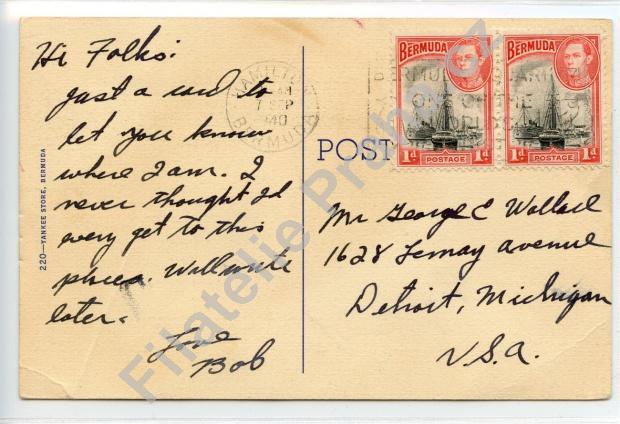 Hi Folks:
just a card to
let you know
where I am. I
never thought I'd
every get to this
place. Will write
later.
Love
Bob
220—YANKEE STORE, BERMUDA
HAMILTON
AM
7 SEP
40
BERMUDA
BERMUDA
1d POSTAGE 1d
BERMUDA
1d POSTAGE 1d
ONE OF THE
POST
Mr George C Wallace
1628 Lemay avenue
Detroit, Michigan
U.S.A.
Filatelie Praha.cz